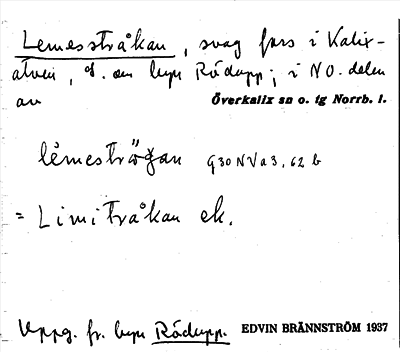 Lemesstråkan, svag fors i Kalix-
älven, s. om byn Rödupp; i NO. delen
av Överkalix sn o. tg Norrb. l.
lèmesträ̊gan G30NVa3, 62 b
= Limitråkan ek.
Uppg. fr. byn Rödupp. EDVIN BRÄNNSTRÖM 1937